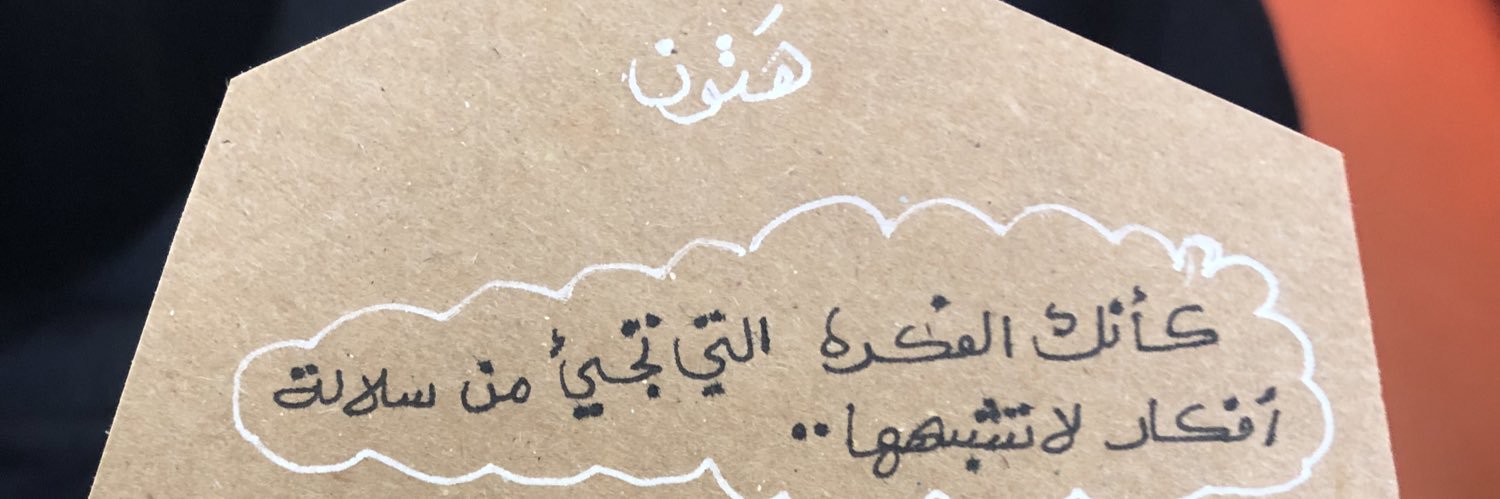 هَتون
كأنك الفكره التي تجيئ من سلالة
أفكار لا تشبهها..